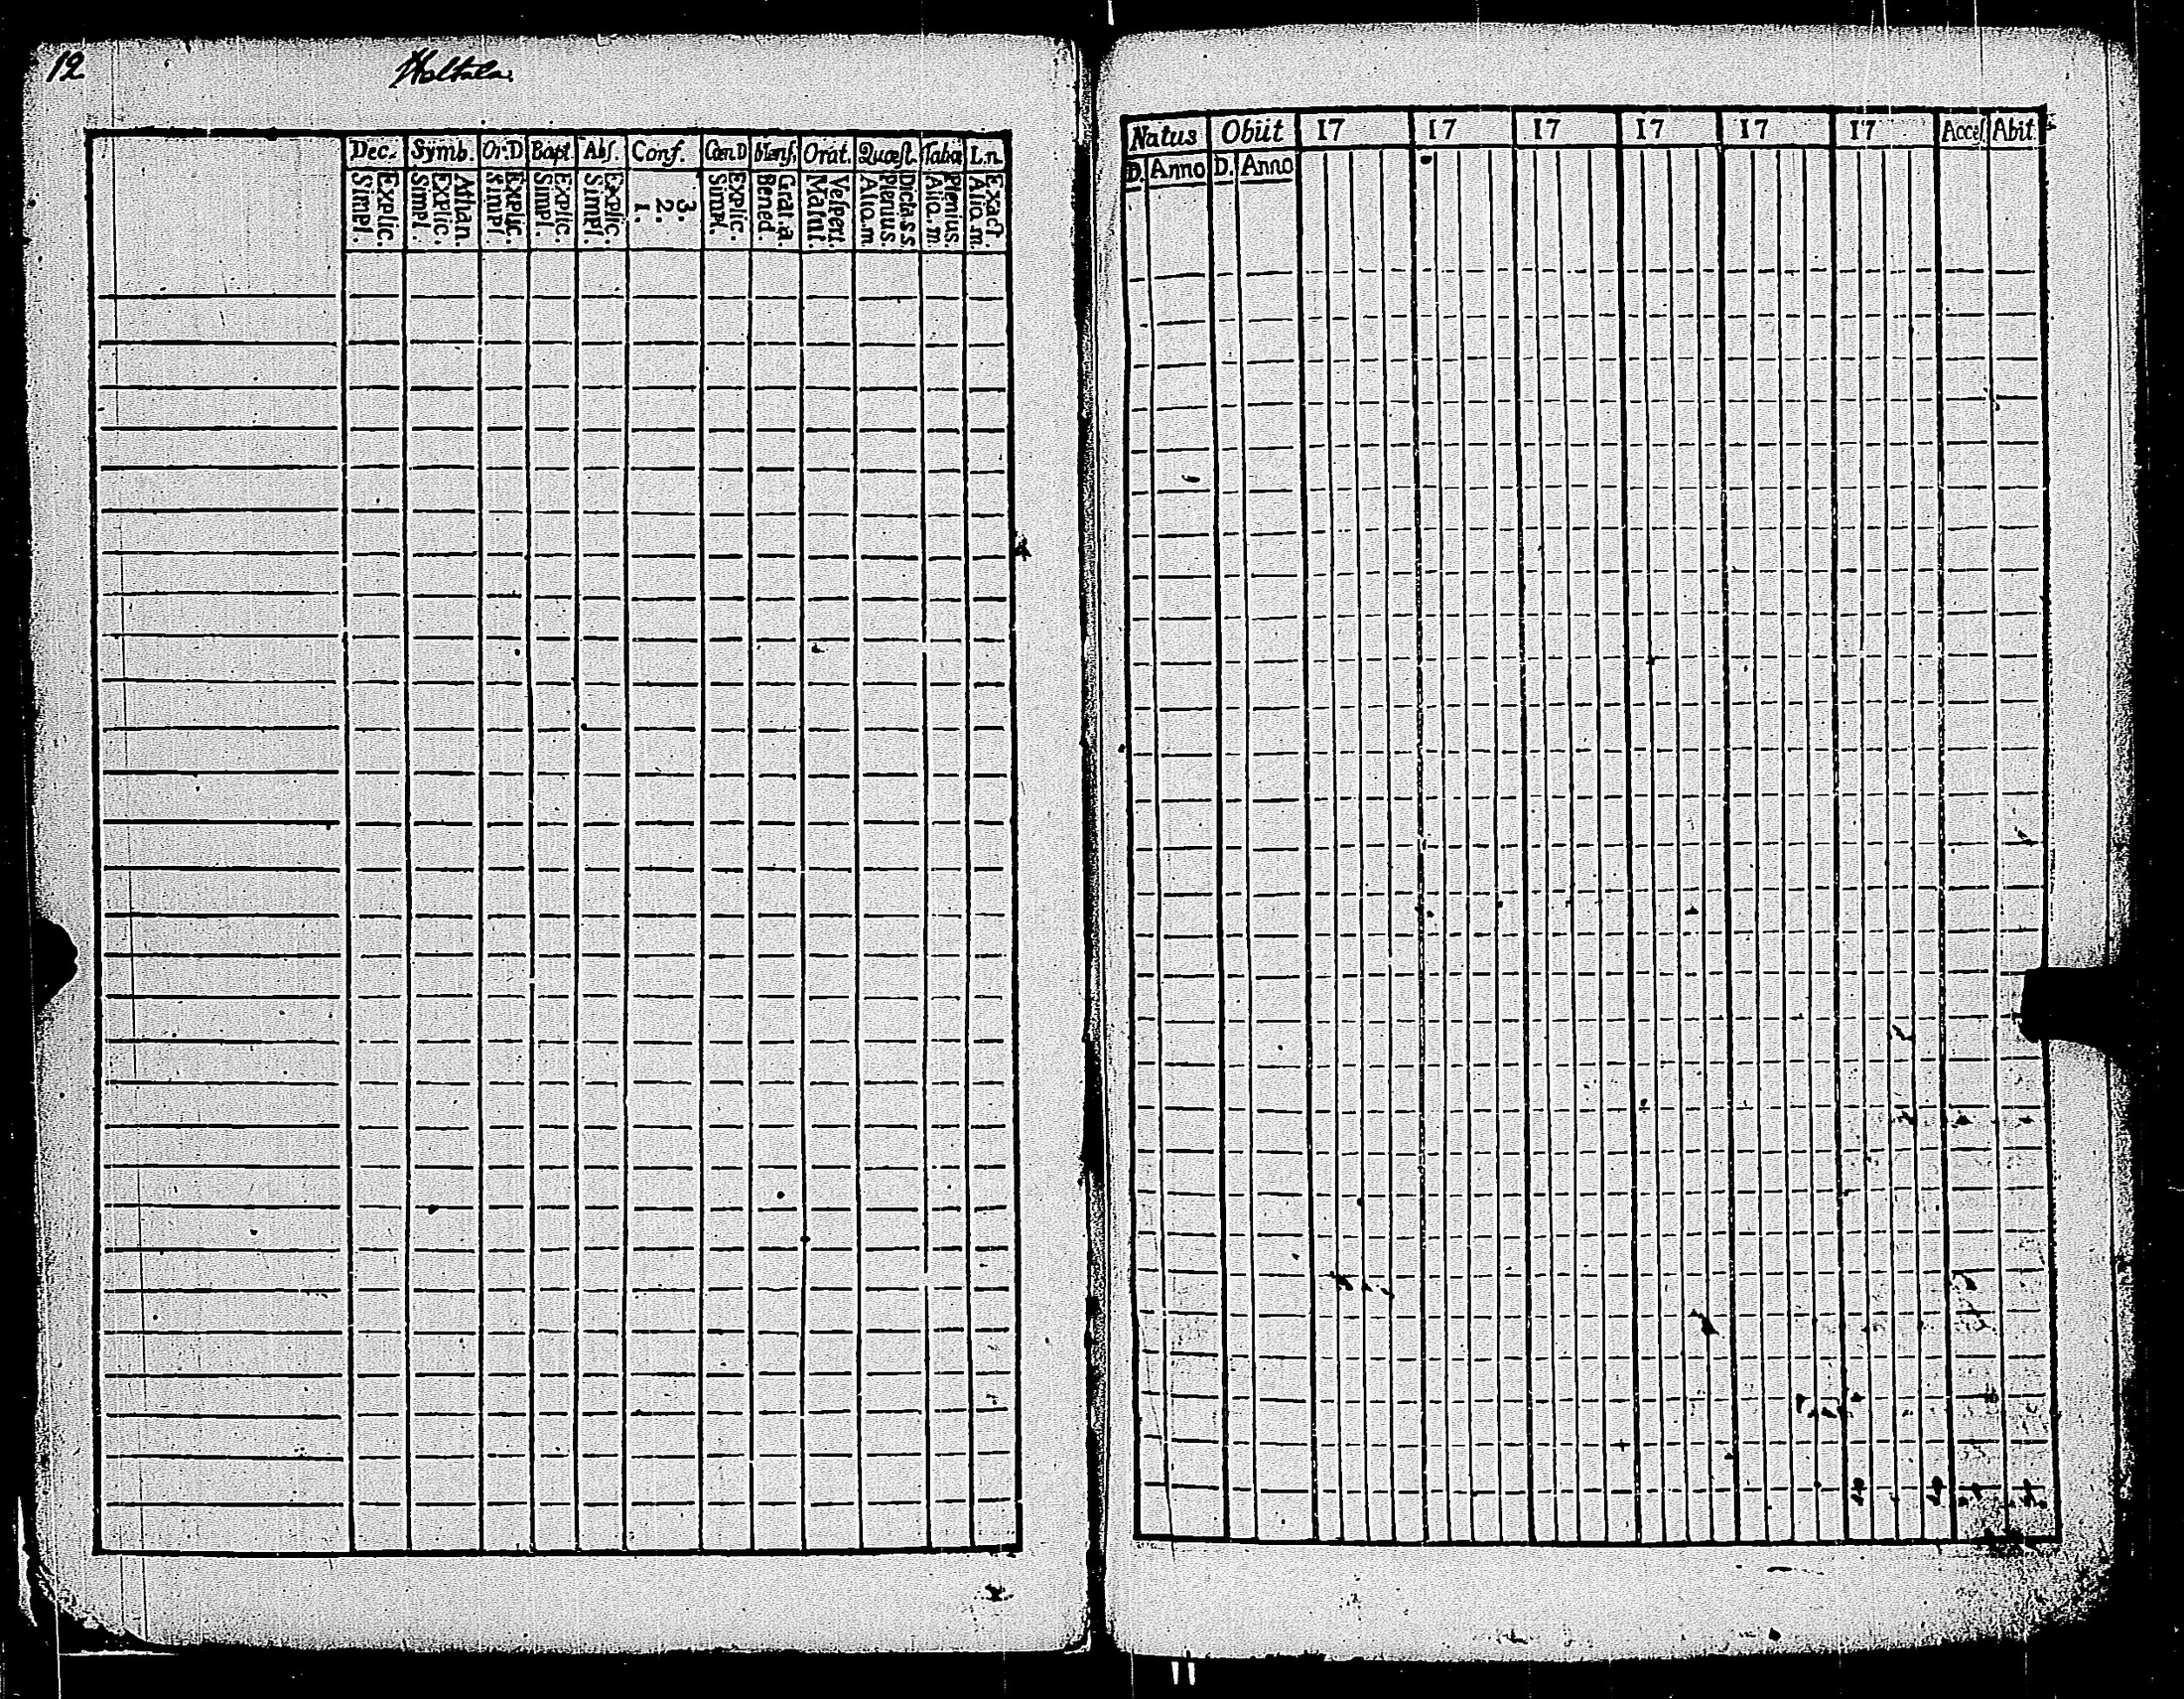 12
Dec. Symb. Or.D Bapt. Abſ. Conf. Cœn.D Menſ. Orat. Quæſt. Tabœ L.n.
Simpl. Explic. Simpl. Explic. Athan. Simpl. Explic. Simpl. Explic. Simpl. Explic. 1. 2. 3. Simpl. Explic. Bened. Grat.a. Matut. Veſpert. Alio.m Plenius. Dicta.s.s. Alio.m. Plenius. Alio.m. Exact.
Natus Obiit 17 17 17 17 17 17 Acceſ Abit
D. Anno D. Anno